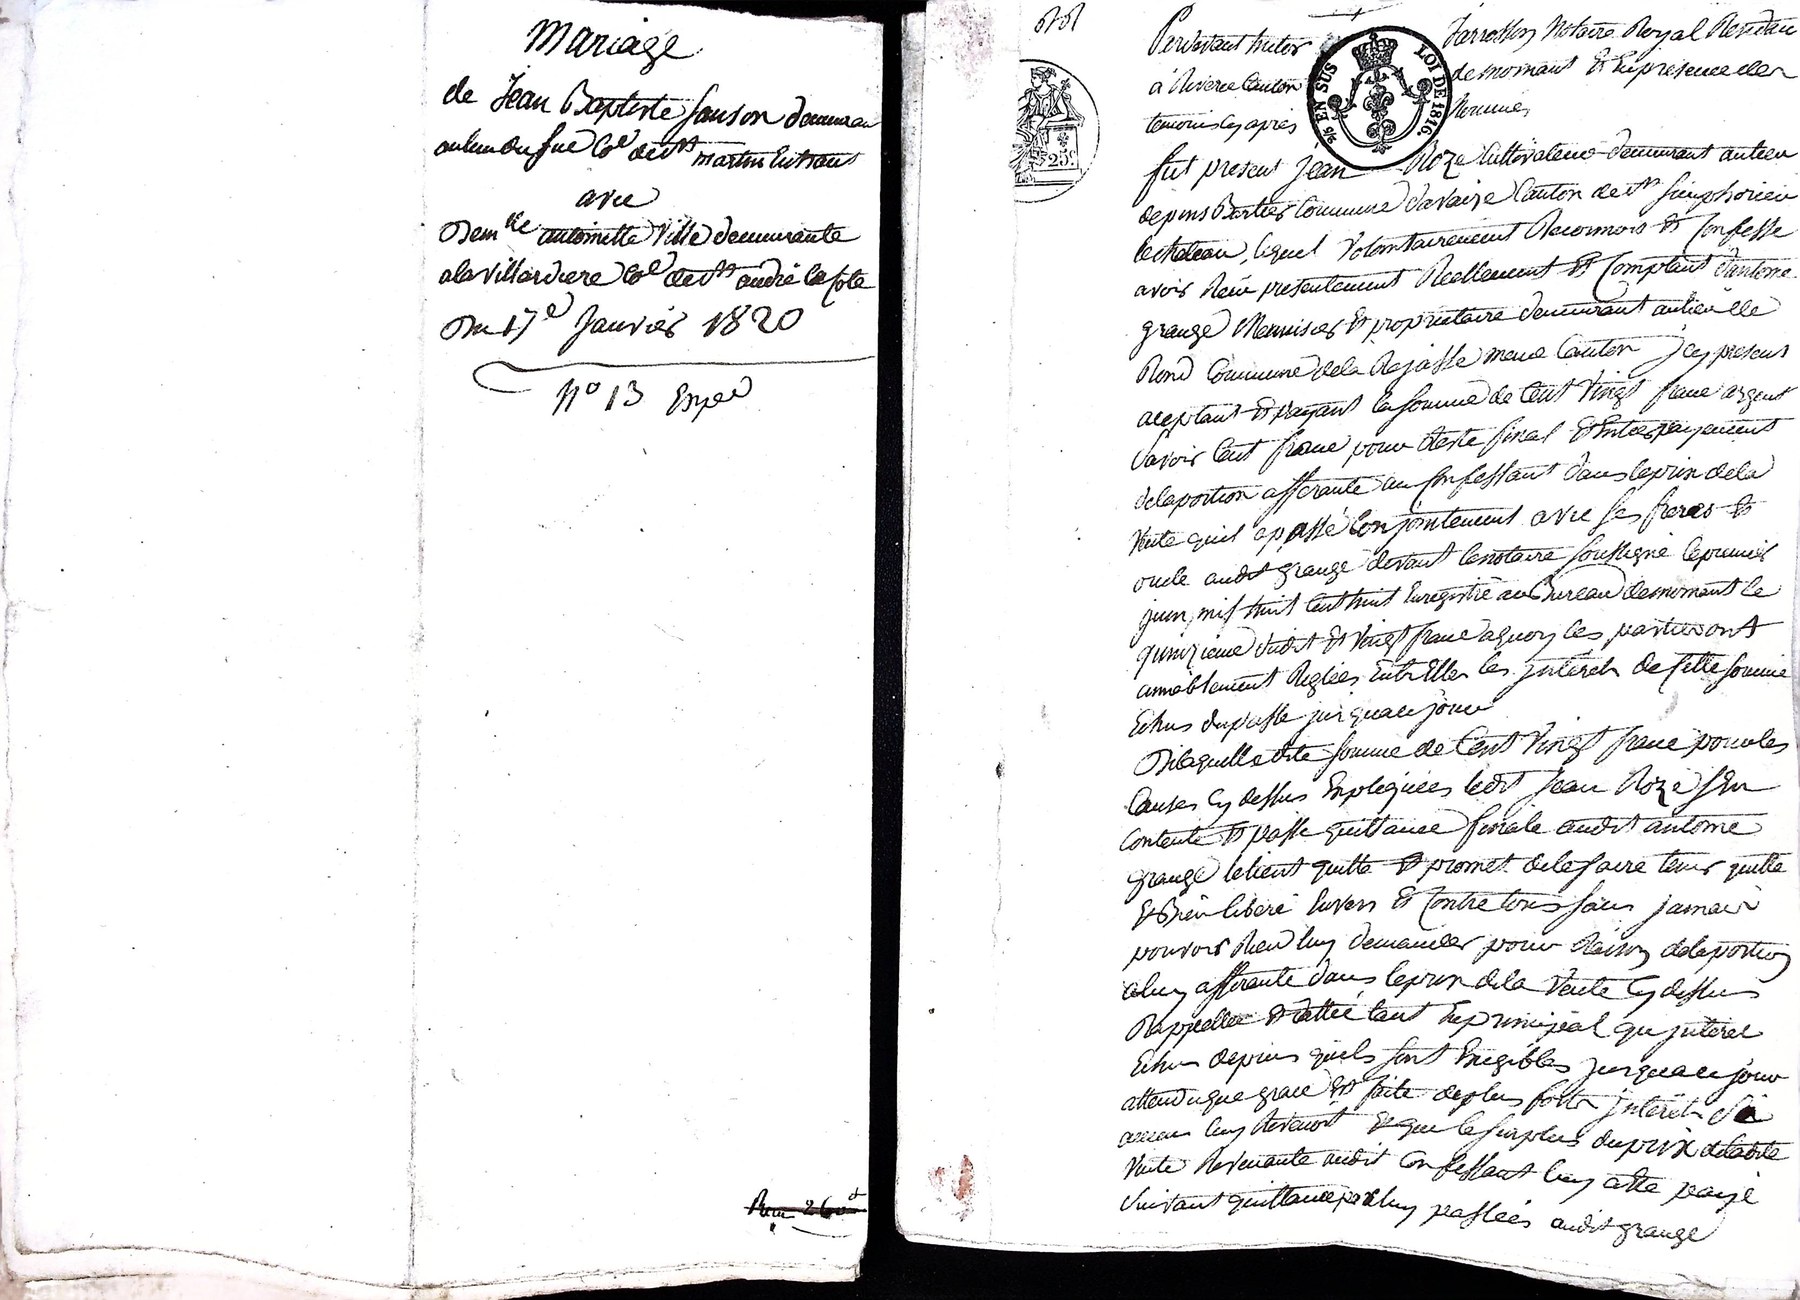 Mariage
de Jean Baptiste Sanson demeuran
au lieu du Coe de st martin
avec
Demlle antoinette Ville demeurante
a la Villardiere Coe de st andré la Cote
Du 17e Janvier 1820
No 13 Exped
Pardevant Jarrosson Notaire Royal Residan
à Riverie Canton de mornant & En presence des
temoins cy après Nommés
EN SUS LOI DE 1816.
25c
fut present Jean Roze Cultivateur demeurant au lieu
depins Commune davaize Canton de st Simphorien
le chateau, lequel Volontairement Reconnois & Confesse
avoir Reçu presentement Reellement & Comptant dantoine
grange Menuisier & proprietaire demeurant au lieu de
Rond Commune de la Rajasse meme Canton Jcy present
aceptant & payant la somme de Cent Vingt franc argent
Savoir Cent franc pour Reste final & Entier payement
de la portion afferante au Confessant dans le prix de la
Vente quil a passé Conjointement avec ses freres &
oncle audit grange devant le notaire soussigné le premier
juin mil huit Cent huit Enregistré au Bureau de mornant le
quinzieme dudit & Vingt franc a quoy les parties ont
amablement Reglées Entr Elles les jntérets de cette somme
Echus du passé jusqua ce jour
De laquelle dite somme de Cent Vingt franc pour les
Causes Cy dessus Expliquées ledit Jean Roze s'En
Contente & passe quittance finale audit antoine
grange le tient quitte & promet de le faire tenir quitte
& Bien liberé Envers & Contre tous sans jamais
pouvoir Rien luy demander pour Raison de la portion
a luy afferante dans le prix de la Vente Cy dessus
Rappellée & dattée tant En principal qu jnteret
Echus depuis quils sont Exigibles jusqua ce jour
attendu que grace Est faite de plus forts jnterets si
aucun luy Revenoit & que le surplus du prix de ladite
Vente Revenante audit Confessant luy a Eté payé
Suivant quittance par luy passées audit grange